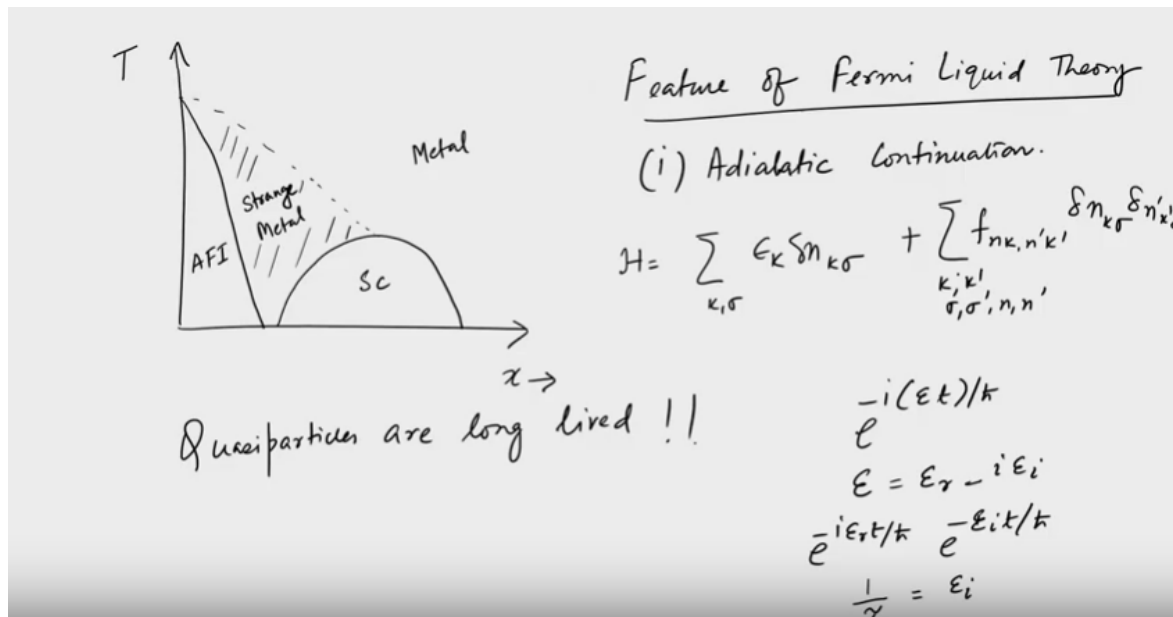 T
Metal
Strange
Metal
AFI
Sc
x →
Quasiparticles are long lived !!
Feature of Fermi Liquid Theory
(i) Adiabatic Continuation.
H = ∑_{k,σ} ϵ_k δn_{kσ} + ∑_{k,k' σ,σ',n,n'} f_{nk,n'k'} δn_{kσ} δn'_{k'}
e^{-i(εt)/ħ}
ε = ε_r - iε_i
e^{-iε_r t/ħ} e^{-ε_i t/ħ}
1/τ = ε_i